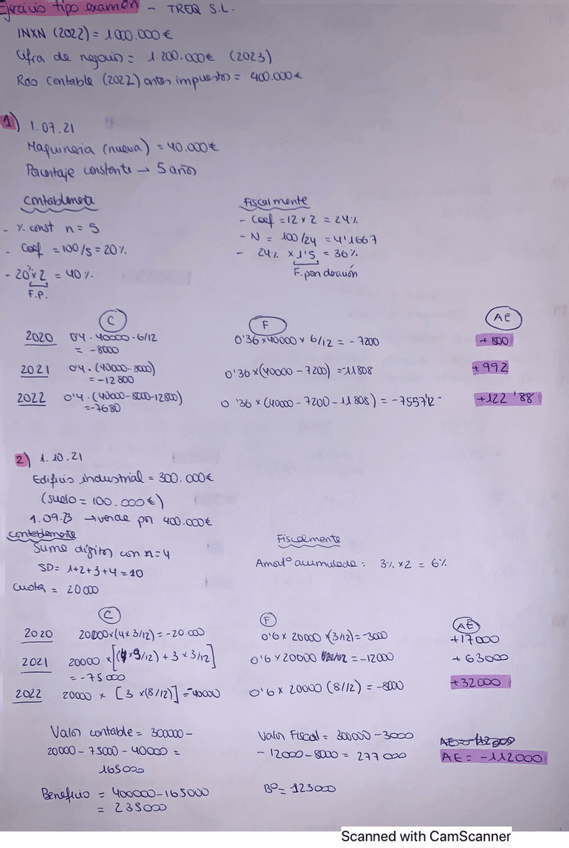 Ejercicio tipo examen - TREQ S.L.
INXN (2022) = 1000.000€
Cifra de negocios = 1.200.000€ (2023)
Rdo Contable (2022) antes impuestos = 400.000€
1) 1.07.21
Maquinaria (nueva) = 40.000€
Porcentaje constante → 5 años
Contablemente
- % const n = 5
- Coef = 100/5 = 20%
- 20 × 2 = 40%
F.P.
Fiscalmente
- Coef = 12 × 2 = 24%
- N = 100/24 = 4'1667
- 24% × 1'5 = 36%
F. ponderación
C F AE
2020 0'4 · 40000 · 6/12 = -8000 0'36 × 40000 × 6/12 = -7200 +800
2021 0'4 · (40000-8000) = -12800 0'36 × (40000 - 7200) = 11808 +992
2022 0'4 · (40000-8000-12800) = -7680 0'36 × (40000 - 7200 - 11808) = -7557'12 +122'88
2) 1.10.21
Edificio industrial = 300.000€
(suelo = 100.000€)
1.09.23 → vende por 400.000€
Contablemente
Suma dígitos con n=4
SD = 1+2+3+4 = 10
Cuota = 20000
Fiscalmente
Amortº acumulada: 3% × 2 = 6%
C F AE
2020 20000 × (4 × 3/12) = -20.000 0'6 × 20000 × (3/12) = -3000 +17000
2021 20000 × [(4 × 9/12) + 3 × 3/12] = -75000 0'6 × 20000 = -12000 +63000
2022 20000 × [3 × (8/12)] = -40000 0'6 × 20000 (8/12) = -8000 +32000
Valor contable = 300000 -
20000 - 75000 - 40000 =
165000
Beneficio = 400000 - 165000
= 235000
Valor Fiscal = 300000 - 3000
- 12000 - 8000 = 277000
Bº = 123000
AE = -112000
Scanned with CamScanner